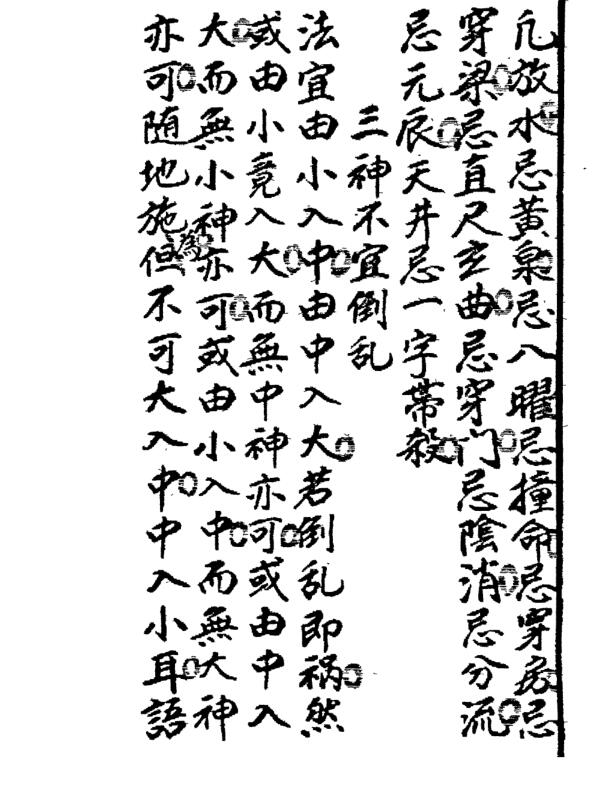 凡放水忌黃泉忌八曜忌撞命忌穿房忌
穿梁忌直尺玄曲忌穿門忌陰消忌分流
忌元辰天井忌一字帶殺
三神不宜倒乱
法宜由小入中由中入大若倒乱即禍然
或由小竟入大而無中神亦可或由中入
大而無小神亦可或由小入中而無大神
亦可随地施為但不可大入中中入小耳語